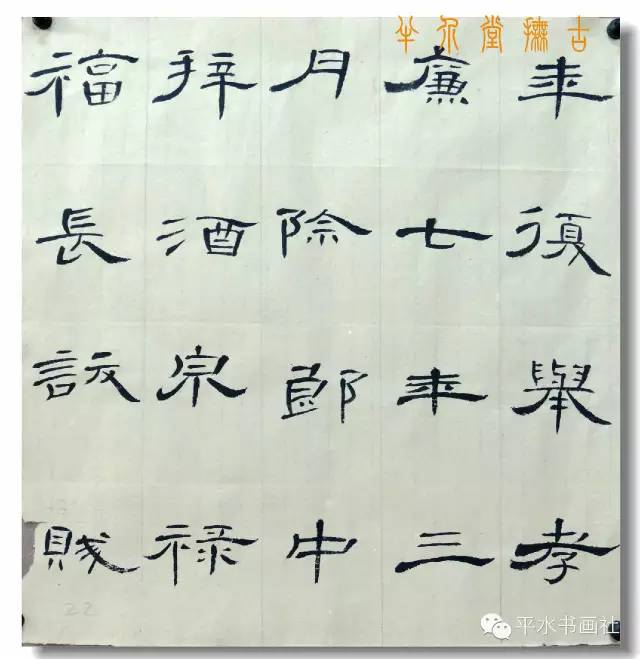 半堂古
年復舉孝
廉七年三
月除郎中
拜酒泉禄
福長訞賊
22
平水书画社